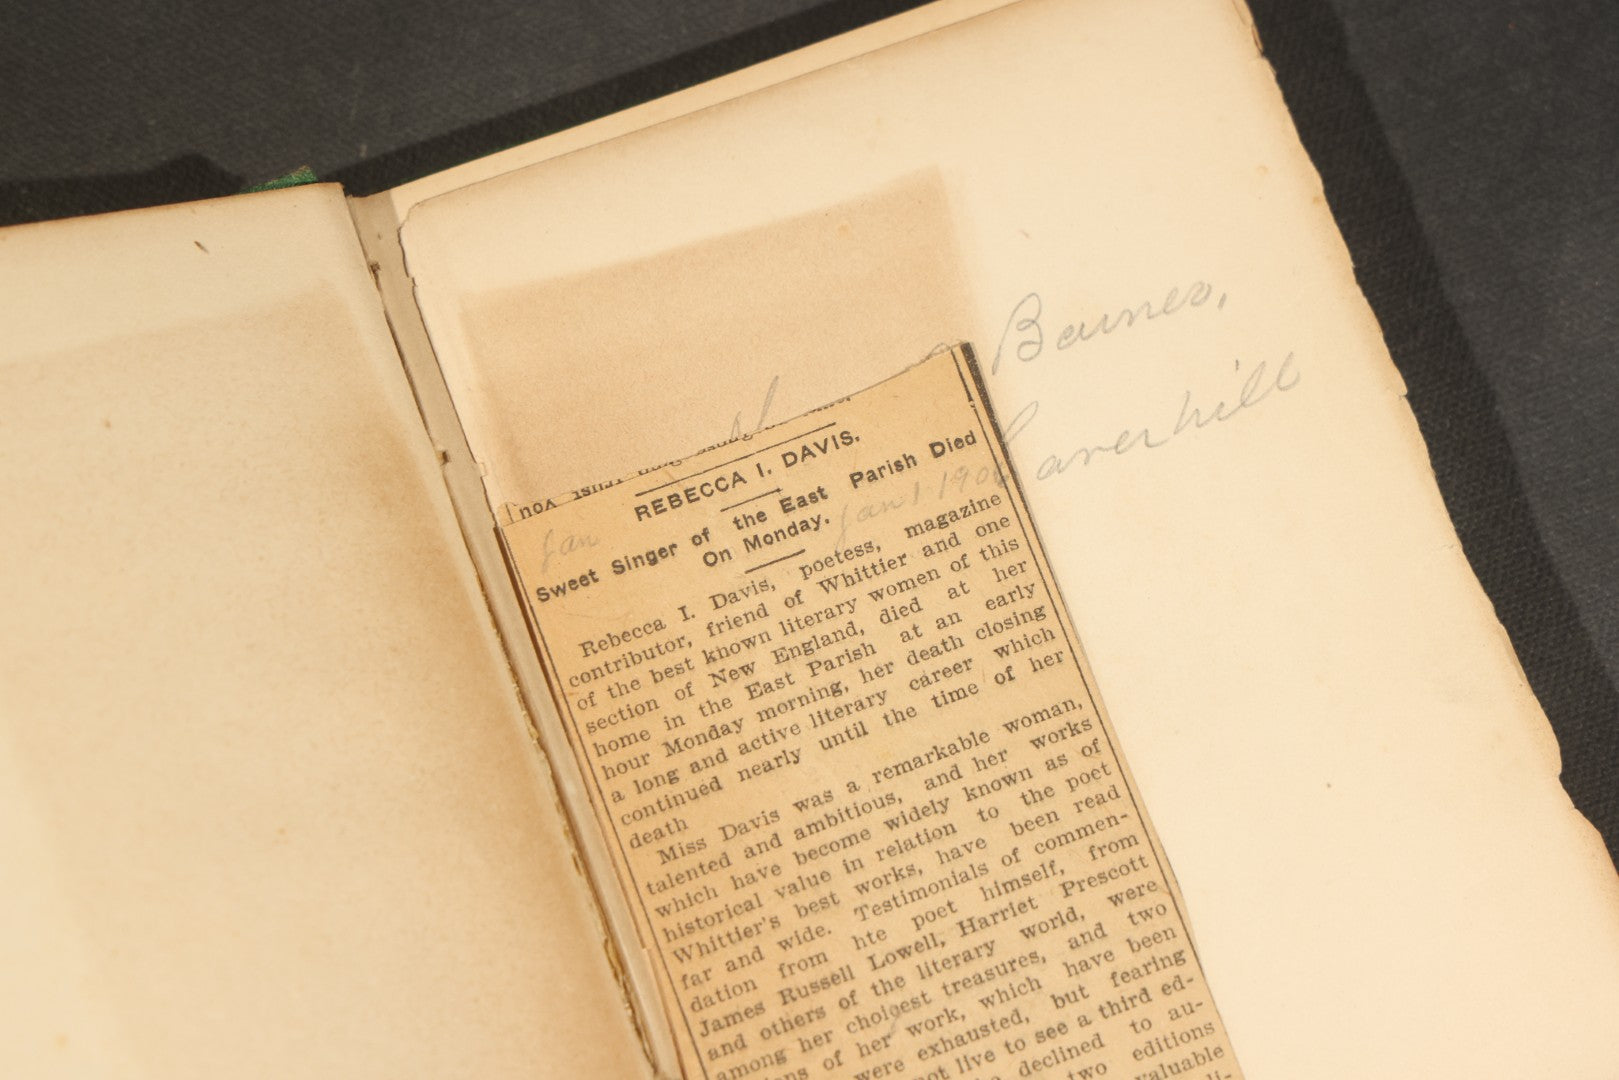 Barnes,
Haverhill
REBECCA I. DAVIS.
Sweet Singer of the East Parish Died
On Monday.
Jan
Jan 1 190
Rebecca I. Davis, poetess, magazine
contributor, friend of Whittier and one
of the best known literary women of this
section of New England, died at her
home in the East Parish at an early
hour Monday morning, her death closing
a long and active literary career which
continued nearly until the time of her
death
Miss Davis was a remarkable woman,
talented and ambitious, and her works
which have become widely known as of
historical value in relation to the poet
Whittier's best works, have been read
far and wide. Testimonials of commen-
dation from hte poet himself, from
James Russell Lowell, Harriet Prescott
and others of the literary world, were
among her choicest treasures, and two
of her work, which have been
were exhausted, but fearing
not live to see a third ed-
declined to au-
two editions
valuable